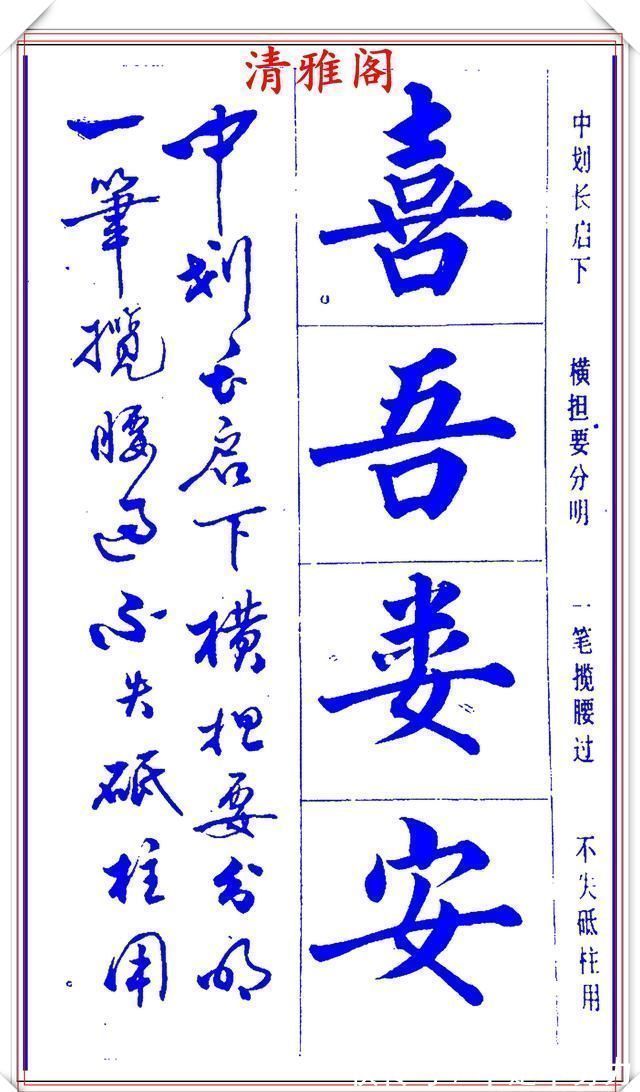 清雅阁
中划长启下
横担要分明
一笔揽腰过
不失砥柱用
喜
吾
娄
安
中划长启下横担要分明
一筆揽腰过不失砥柱用